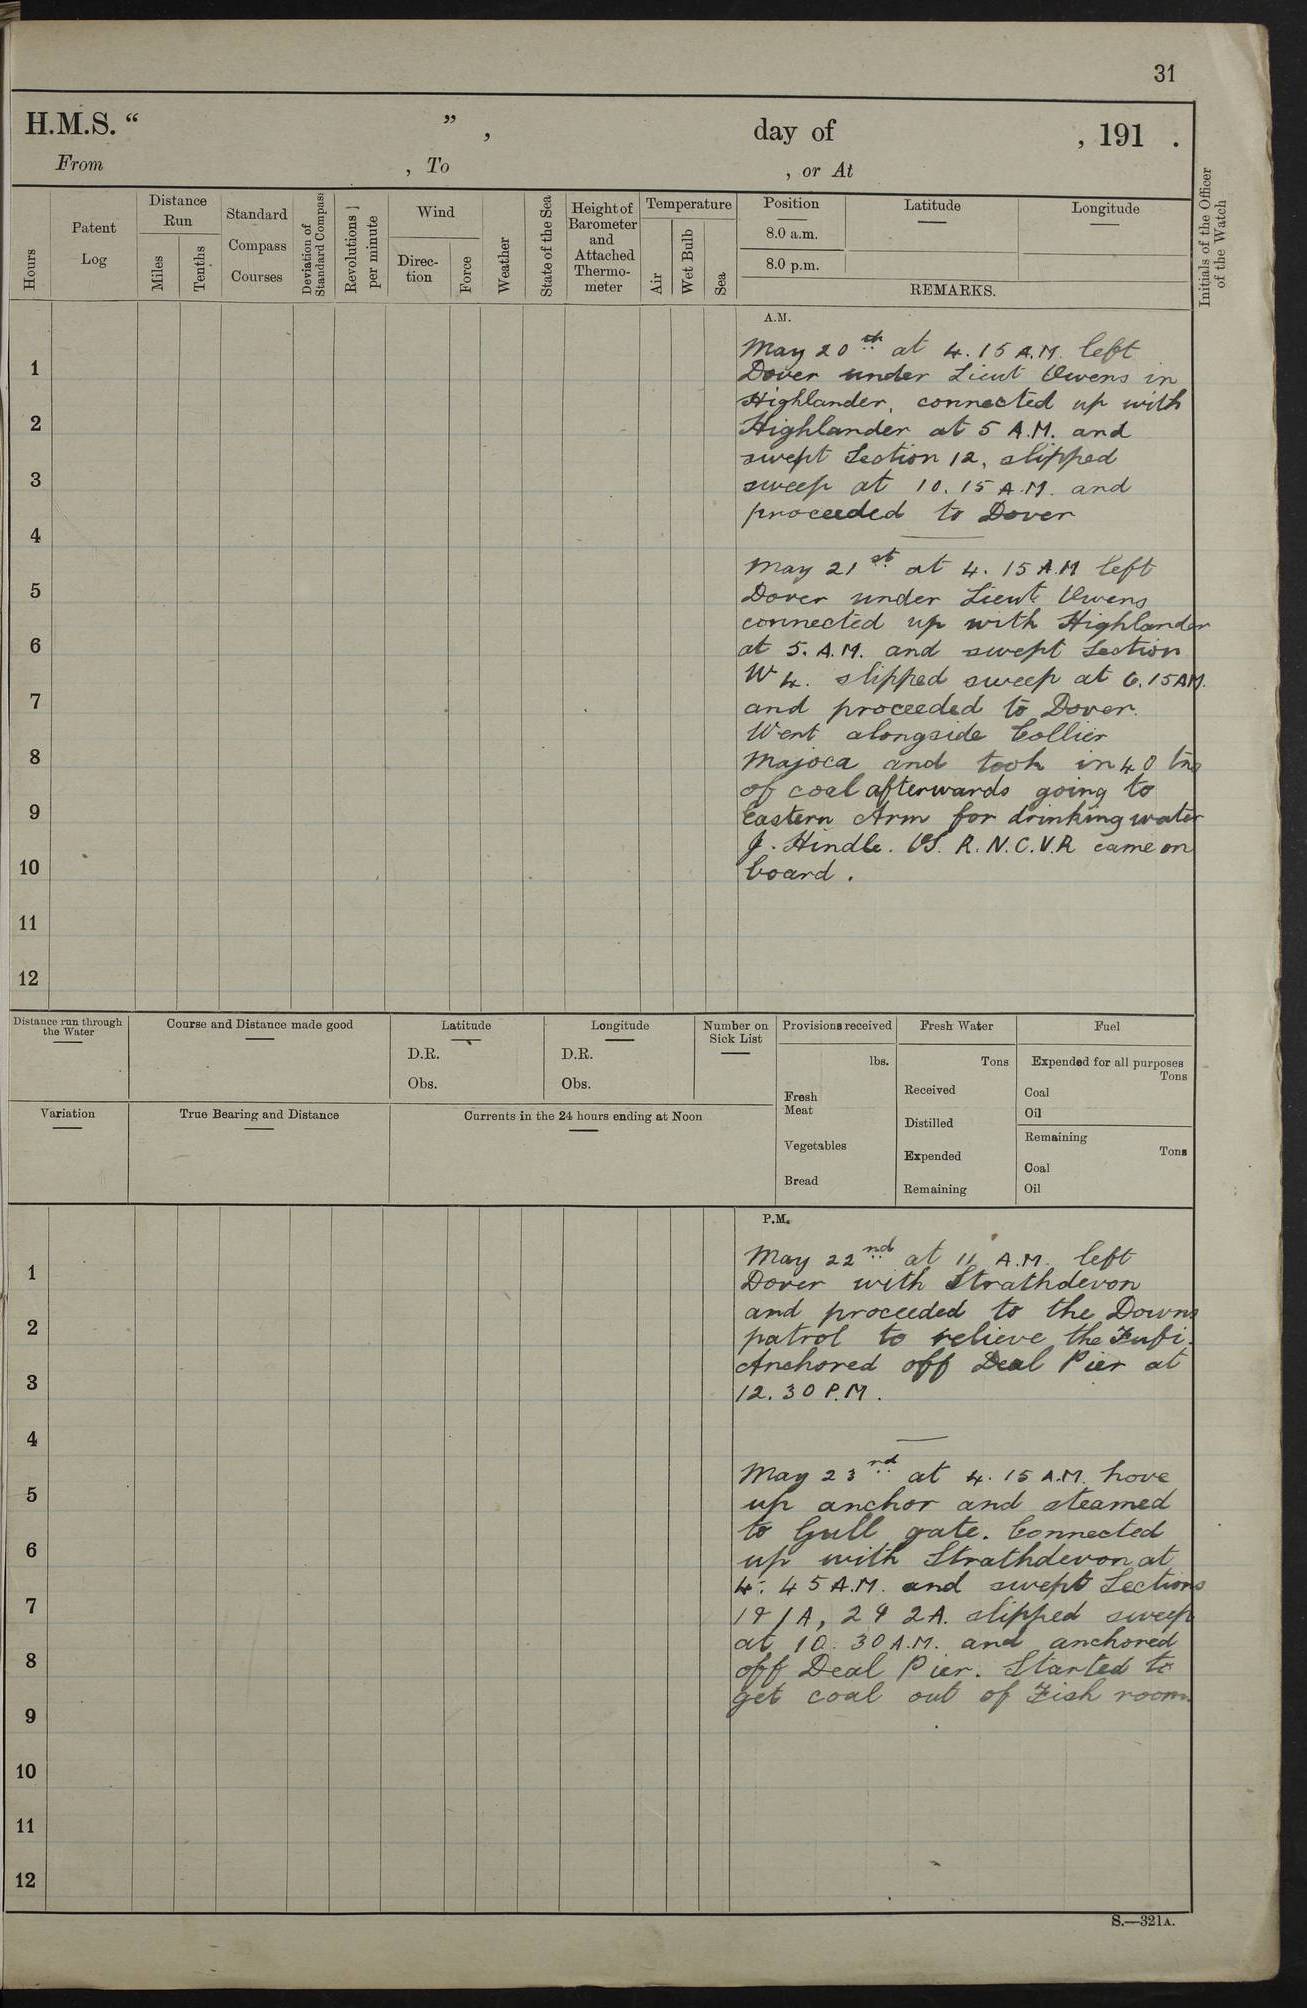 31
H.M.S. “ ” , day of , 191 .
From , To , or At
Hours
Patent Log
Distance Run
Miles
Tenths
Standard Compass Courses
Deviation of Standard Compass
Revolutions per minute
Wind
Direc-tion
Force
Weather
State of the Sea
Height of Barometer and Attached Thermo-meter
Temperature
Air
Wet Bulb
Sea
Position
8.0 a.m.
8.0 p.m.
Latitude
Longitude
REMARKS.
Initials of the Officer of the Watch
A.M.
May 20th at 4.15 A.M. left
Dover under Lieut Owens in
Highlander, connected up with
Highlander at 5 A.M. and
swept Section 12, slipped
sweep at 10.15 A.M. and
proceeded to Dover
May 21st at 4.15 A.M left
Dover under Lieut Owens
connected up with Highlander
at 5. A.M. and swept Section
W 4. slipped sweep at 6.15 AM.
and proceeded to Dover.
Went alongside Collier
Majoca and took in 40 tns
of coal afterwards going to
Eastern Arm for drinking water
J. Hindle. OS. R.N.C.V.R came on
board.
1
2
3
4
5
6
7
8
9
10
11
12
Distance run through the Water
Course and Distance made good
Latitude
D.R.
Obs.
Longitude
D.R.
Obs.
Number on Sick List
Provisions received
lbs.
Fresh Meat
Vegetables
Bread
Fresh Water
Tons
Received
Distilled
Expended
Remaining
Fuel
Expended for all purposes
Tons
Coal
Oil
Remaining
Tons
Coal
Oil
Variation
True Bearing and Distance
Currents in the 24 hours ending at Noon
P.M.
May 22nd at 11 A.M. left
Dover with Strathdevon
and proceeded to the Downs
patrol to relieve the Fufi.
Anchored off Deal Pier at
12.30 P.M.
May 23rd at 4.15 A.M. hove
up anchor and steamed
to Gull gate. Connected
up with Strathdevon at
4.45 A.M. and swept Sections
1 & 1A, 2 & 2A. slipped sweep
at 10.30 A.M. and anchored
off Deal Pier. Started to
get coal out of Fish room.
1
2
3
4
5
6
7
8
9
10
11
12
S.—321A.